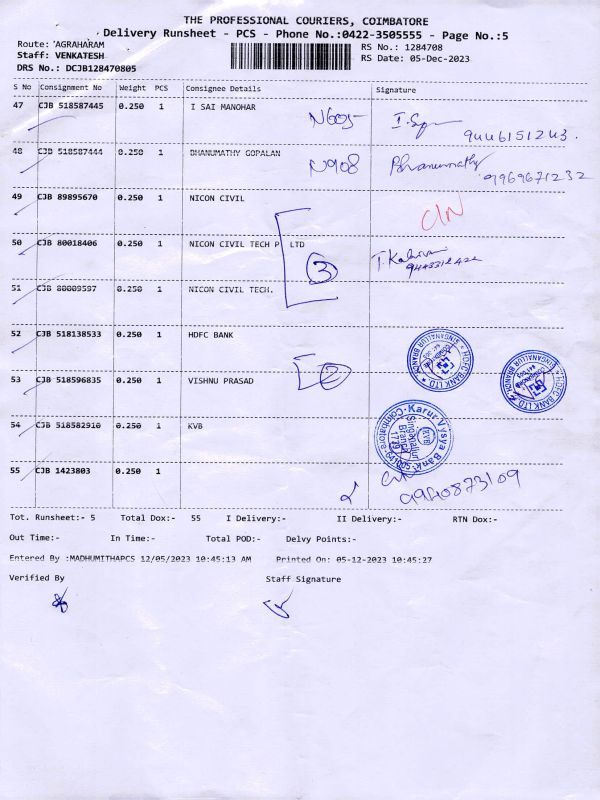 THE PROFESSIONAL COURIERS, COIMBATORE
Delivery Runsheet - PCS - Phone No.:0422-3505555 - Page No.:5
Route: 'AGRAHARAM
RS No.: 1284708
Staff: VENKATESH
RS Date: 05-Dec-2023
DRS No.: DCJB128470805
S No Consignment No Weight PCS Consignee Details Signature
47 CJB 518587445 0.250 1 I SAI MANOHAR N605
9446151243.
48 CJB 518587444 0.250 1 BHANUMATHY GOPALAN N908 Bhanumathy
9969671232
49 CJB 89895670 0.250 1 NICON CIVIL
50 CJB 80018406 0.250 1 NICON CIVIL TECH P LTD
3
51 CJB 80009597 0.250 1 NICON CIVIL TECH.
52 CJB 518138533 0.250 1 HDFC BANK
HDFC BANK LTD. SINGANALLUR BRANCH
HDFC BANK LTD. SINGANALLUR BRANCH
53 CJB 518596835 0.250 1 VISHNU PRASAD 2
54 CJB 518582910 0.250 1 KVB
Karur Vysya Bank
KVB
Singanallur
Branch
1779
55 CJB 1423803 0.250 1
9940873109
Tot. Runsheet:- 5 Total Dox:- 55 I Delivery:- II Delivery:- RTN Dox:-
Out Time:- In Time:- Total POD:- Delvy Points:-
Entered By :MADHUMITHAPCS 12/05/2023 10:45:13 AM Printed On: 05-12-2023 10:45:27
Verified By Staff Signature